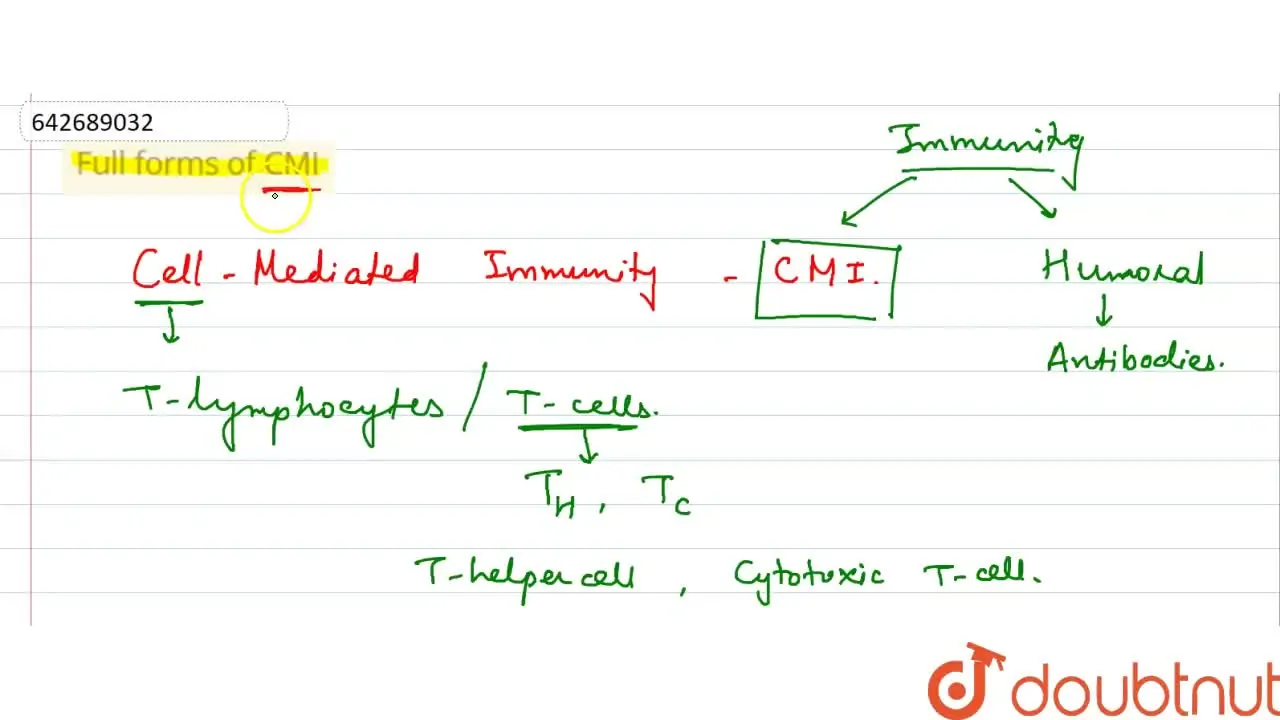 642689032
Full forms of CMI
Immunity
Cell - Mediated Immunity - CMI.
Humoral
Antibodies.
T-lymphocytes / T-cells.
TH, TC
T-helper cell, Cytotoxic T-cell.
doubtnut